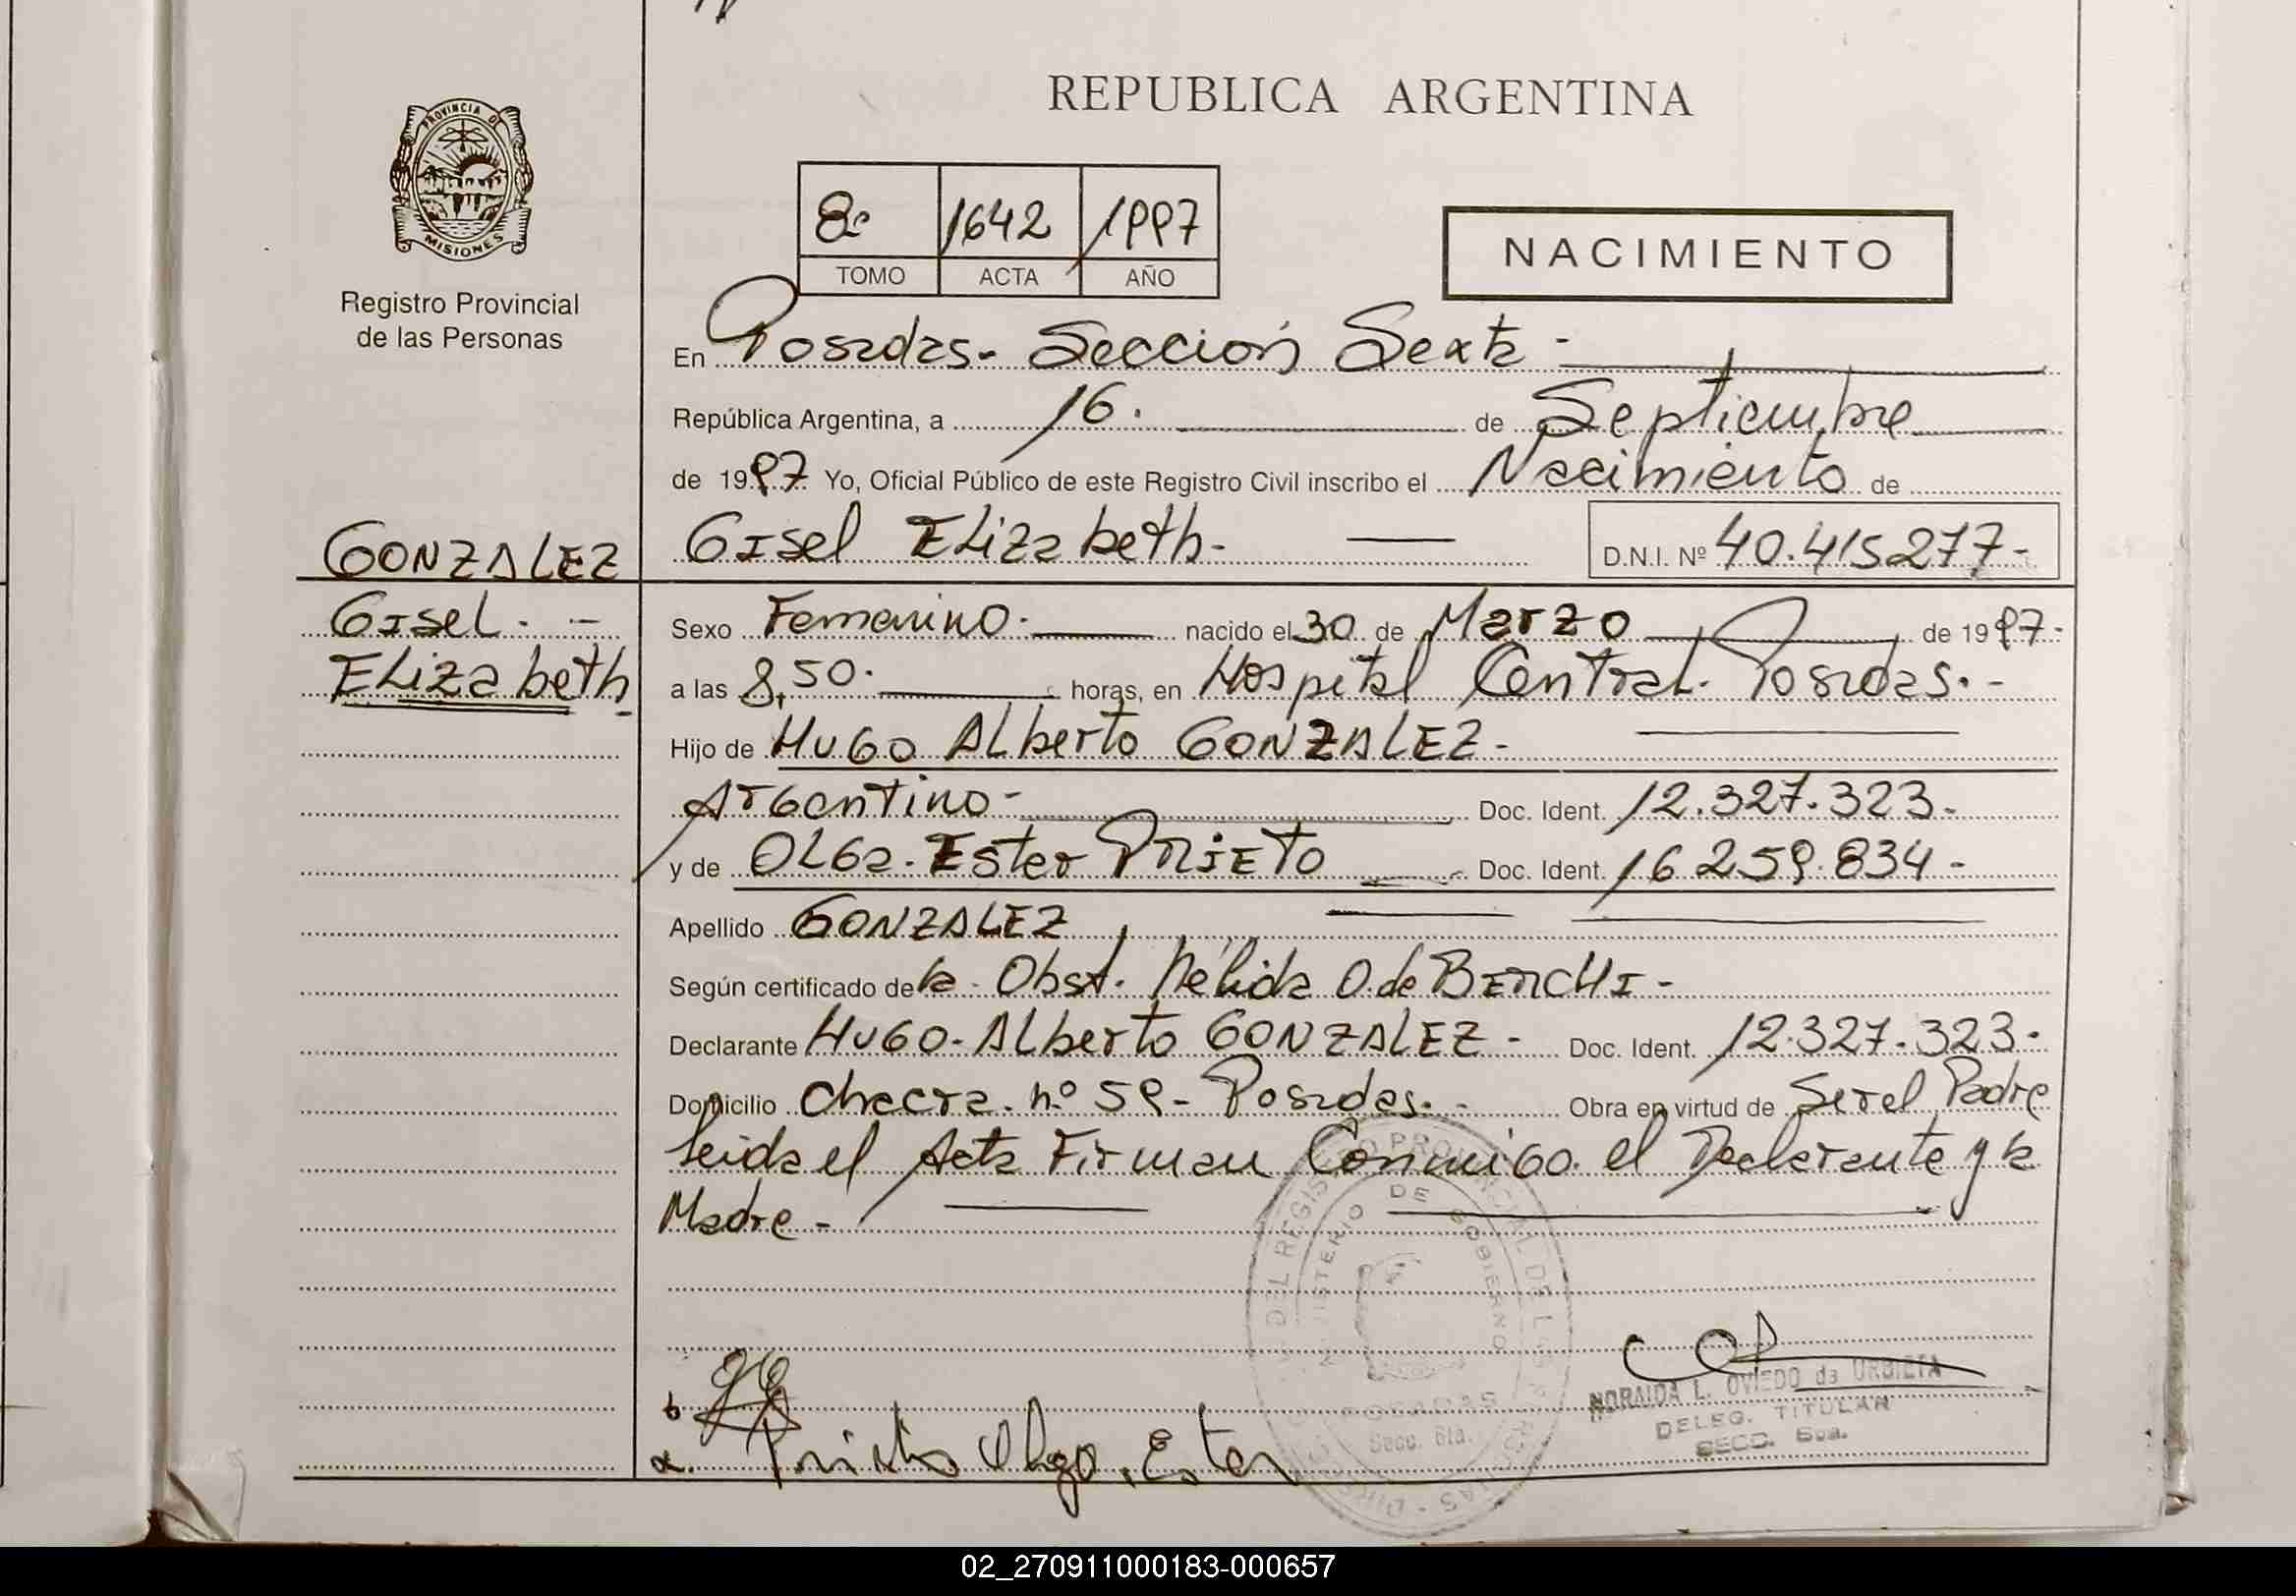 REPUBLICA ARGENTINA
PROVINCIA DE
MISIONES
Registro Provincial
de las Personas
8º 1642 1997
TOMO ACTA AÑO
NACIMIENTO
En Posadas. Sección Sexta -
República Argentina, a 16. de Septiembre
de 1997 Yo, Oficial Público de este Registro Civil inscribo el Nacimiento de
GONZALEZ
Gisel
Elizabeth
Gisel Elizabeth- D.N.I. Nº 40.415277-
Sexo Femenino. nacido el 30 de Marzo de 1997-
a las 8,50. horas, en Hospital Central. Posadas. -
Hijo de Hugo Alberto GONZALEZ-
Argentino- Doc. Ident. 12.327.323-
y de Olga. Ester PRIETO Doc. Ident. 16 259.834-
Apellido GONZALEZ
Según certificado de la Obst. Nélida O. de BERCHI-
Declarante Hugo. Alberto GONZALEZ- Doc. Ident. 12.327.323-
Domicilio Chacra. nº 59- Posadas. - Obra en virtud de Ser el Padre
leida el Acta Firman Conmigo el Declarante y la
Madre -
DEL REGISTRO PROVINCIAL DE LAS PERSONAS
MINISTERIO DE GOBIERNO
POSADAS
Secc. 6ta.
NORAIDA L. OVIEDO de URBIETA
DELEG. TITULAR
SECC. 6ta.
Prieto Olga Ester
02_270911000183-000657